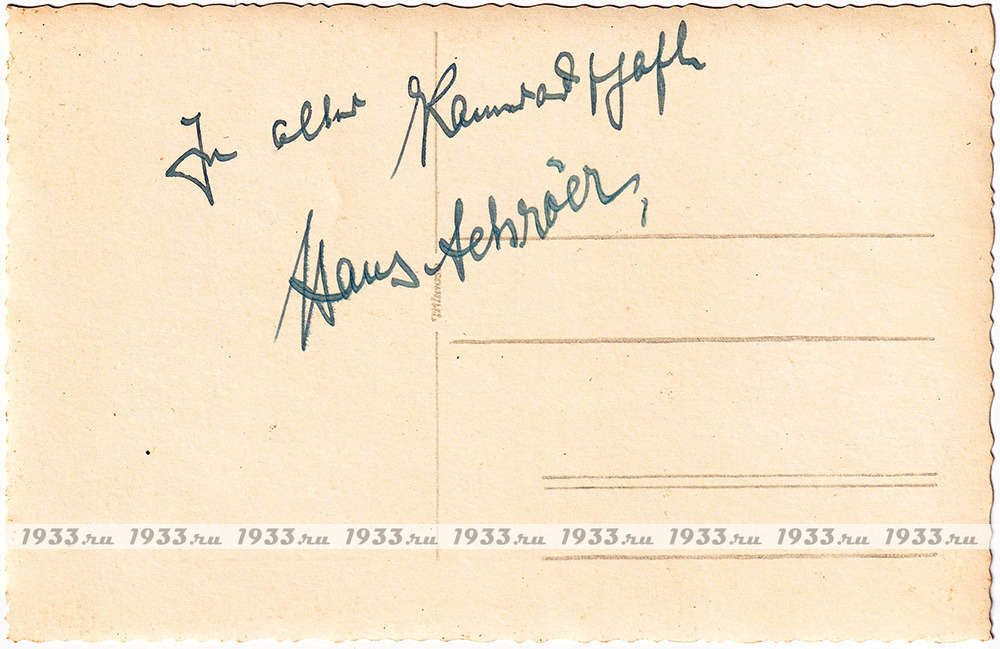 In alter Kameradschaft
Hans Schröer,
1933.ru 1933.ru 1933.ru 1933.ru 1933.ru 1933.ru 1933.ru 1933.ru 1933.ru